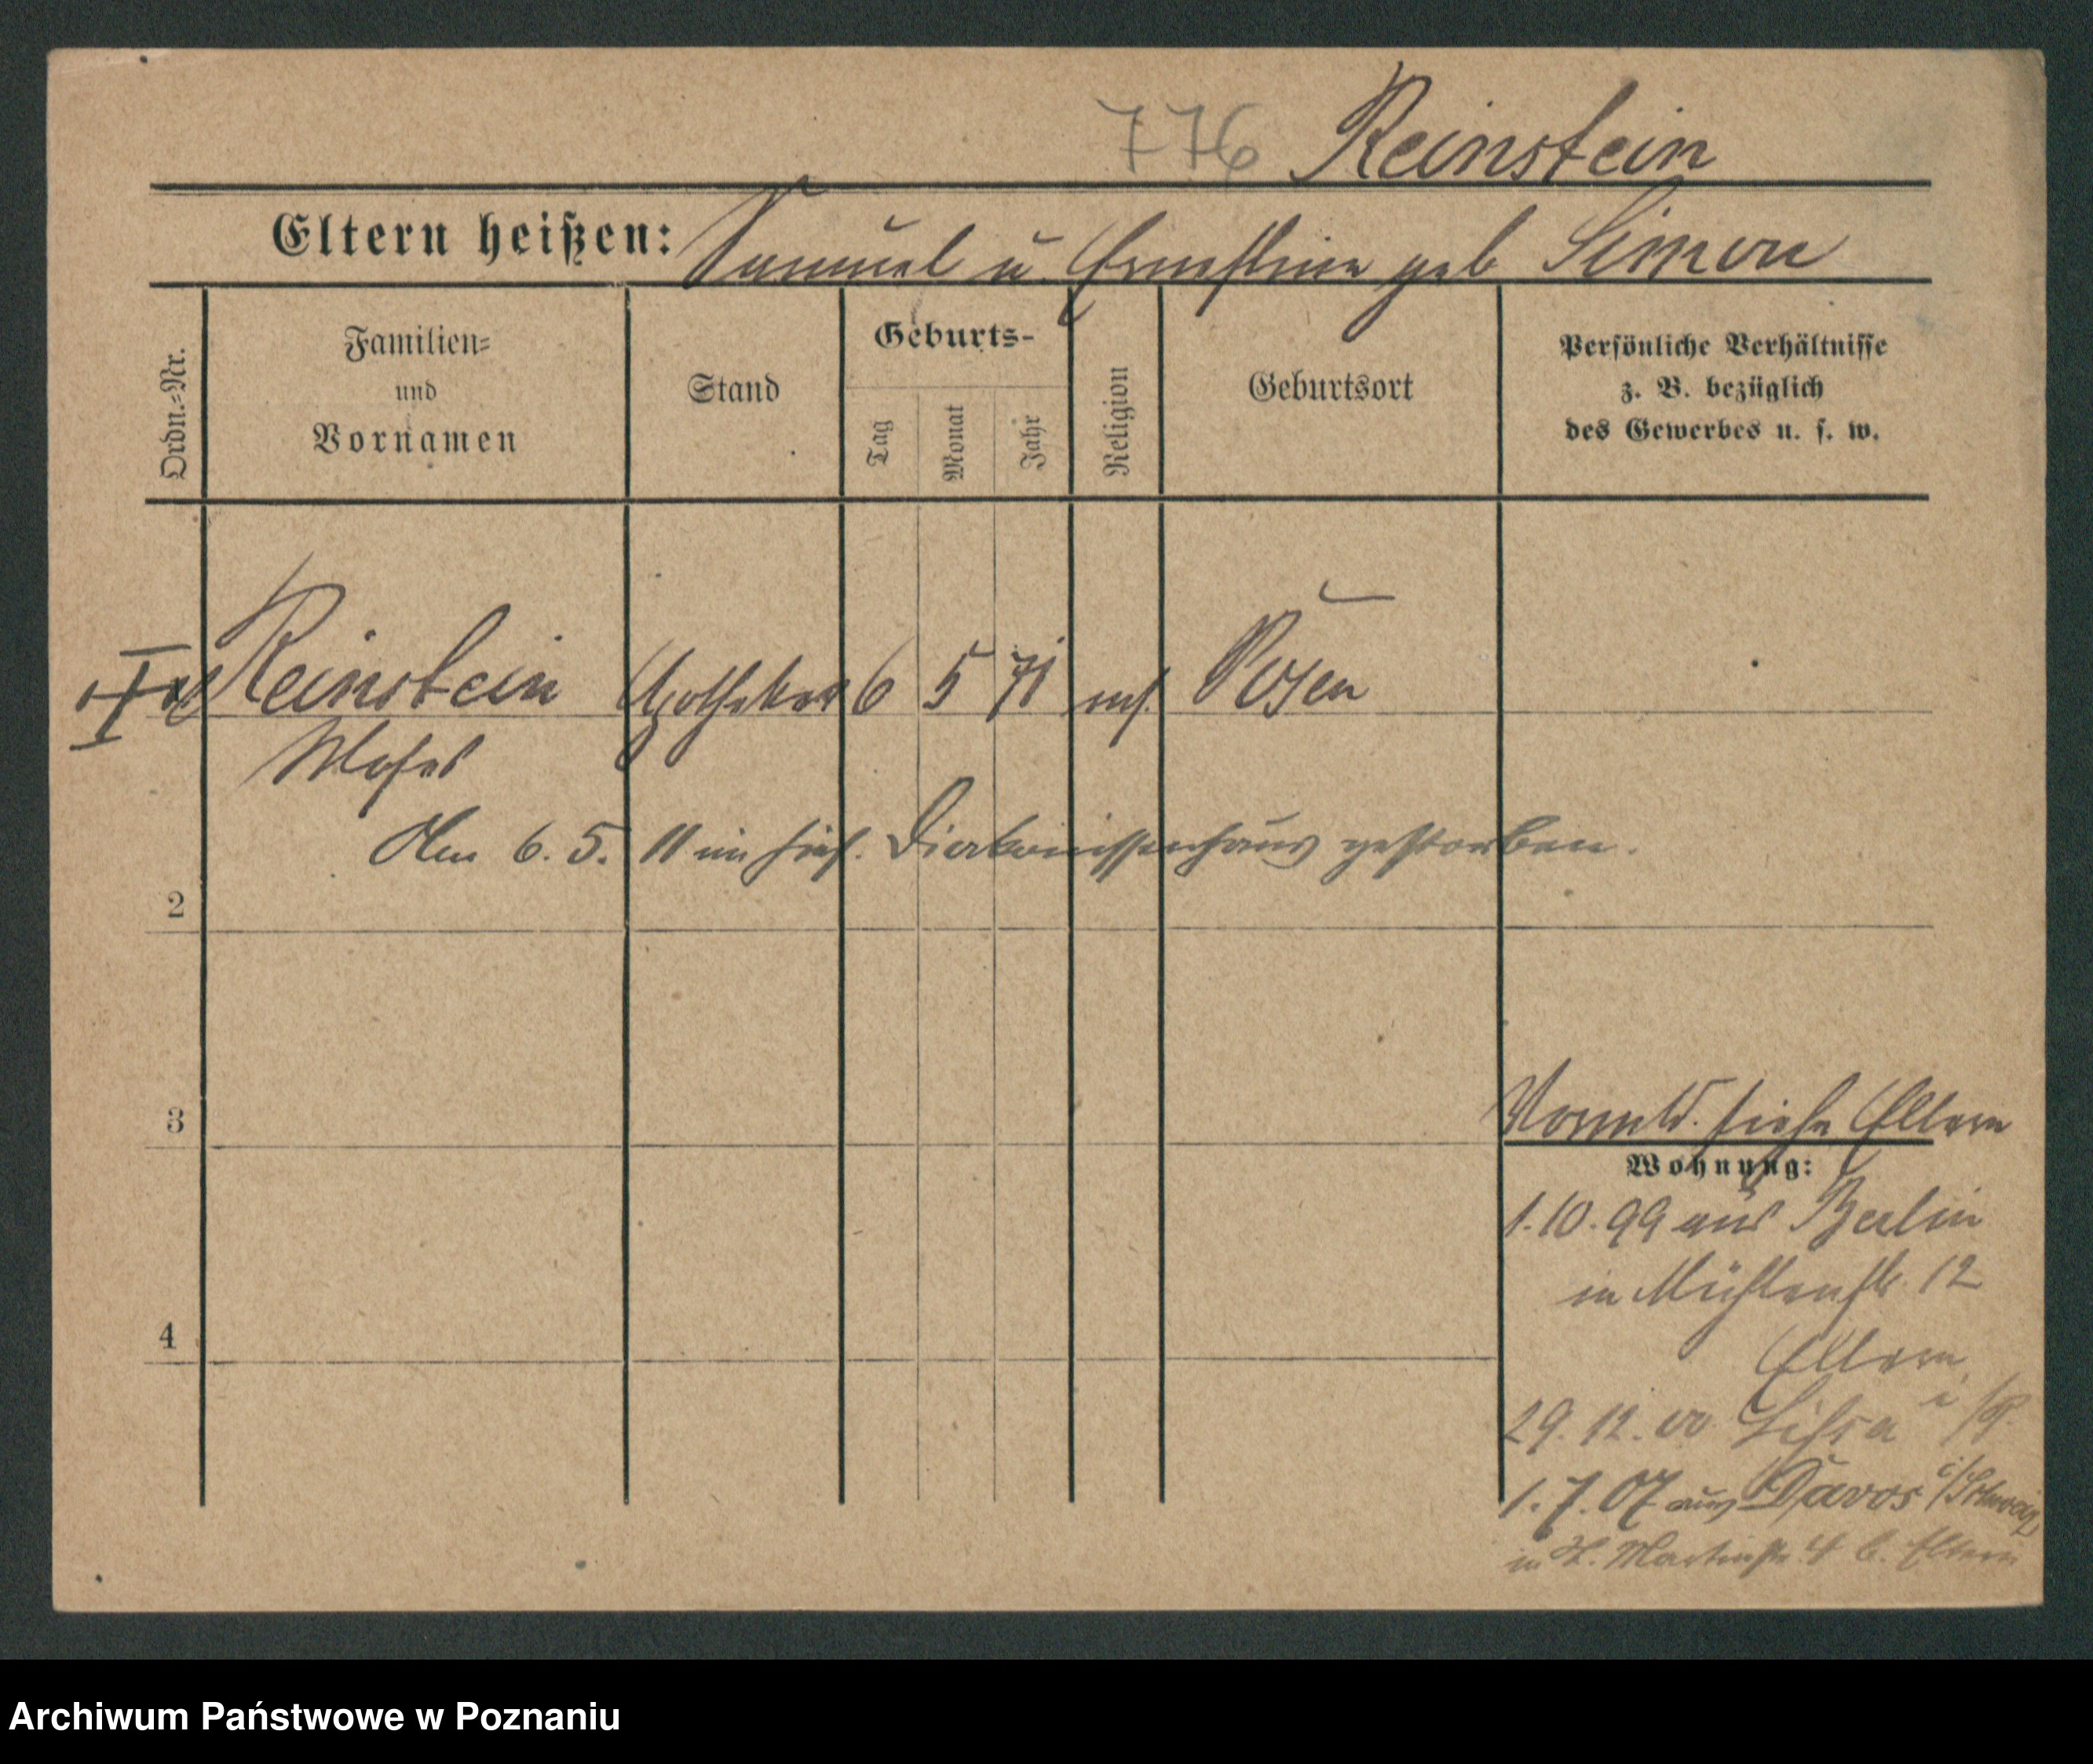 776 Reinstein
Eltern heißen: Samuel u. Ernestine geb Simon
Ordn.=Nr.
Familien=
und
Vornamen
Stand
Geburts-
Tag
Monat
Jahr
Religion
Geburtsort
Persönliche Verhältnisse
z. B. bezüglich
des Gewerbes u. s. w.
Reinstein Apotheker 6 5 71 mos. Posen
Moses
Am 6. 5. 11 im hies. Diakonissenhaus gestorben.
2
3
siehe Eltern
Wohnung:
1.10.99 aus Berlin
in Mühlenstr. 12
4
Eltern
29.12.00 Lissa i/P.
1.7.07 aus Davos i/Schweiz
in St. Martinstr. 4 b. Eltern
Archiwum Państwowe w Poznaniu